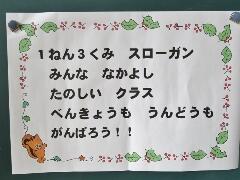 １ねん３くみ　スローガン
みんな　なかよし
たのしい　クラス
べんきょうも　うんどうも
がんばろう！！